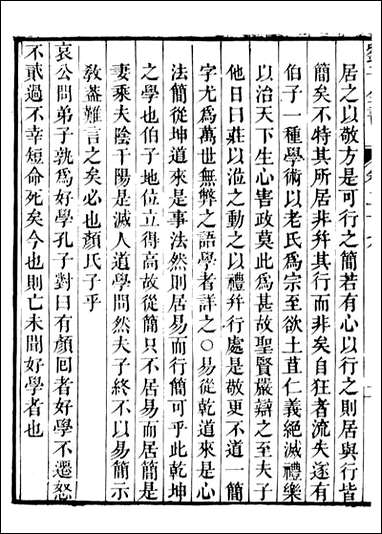 居之以敬方是可行之簡若有心以行之則居與行皆
簡矣不特其所居非幷其行而非矣自狂者流失遂有
伯子一種學術以老氏爲宗至欲土苴仁義絕滅禮樂
以治天下生心害政莫此爲甚故聖賢嚴辯之至夫子
他日曰莊以涖之動之以禮幷行處是敬更不道一簡
字尤爲萬世無弊之語學者詳之〇易從乾道來是心
法簡從坤道來是事法然則居易而行簡可乎此乾坤
之學也伯子地位立得高故從簡只不居易而居簡是
妻乘夫陰干陽是滅人道學問然夫子終不以易簡示
敎蓋難言之矣必也顏氏子乎
哀公問弟子孰爲好學孔子對曰有顏囘者好學不遷怒
不貳過不幸短命死矣今也則亡未聞好學者也